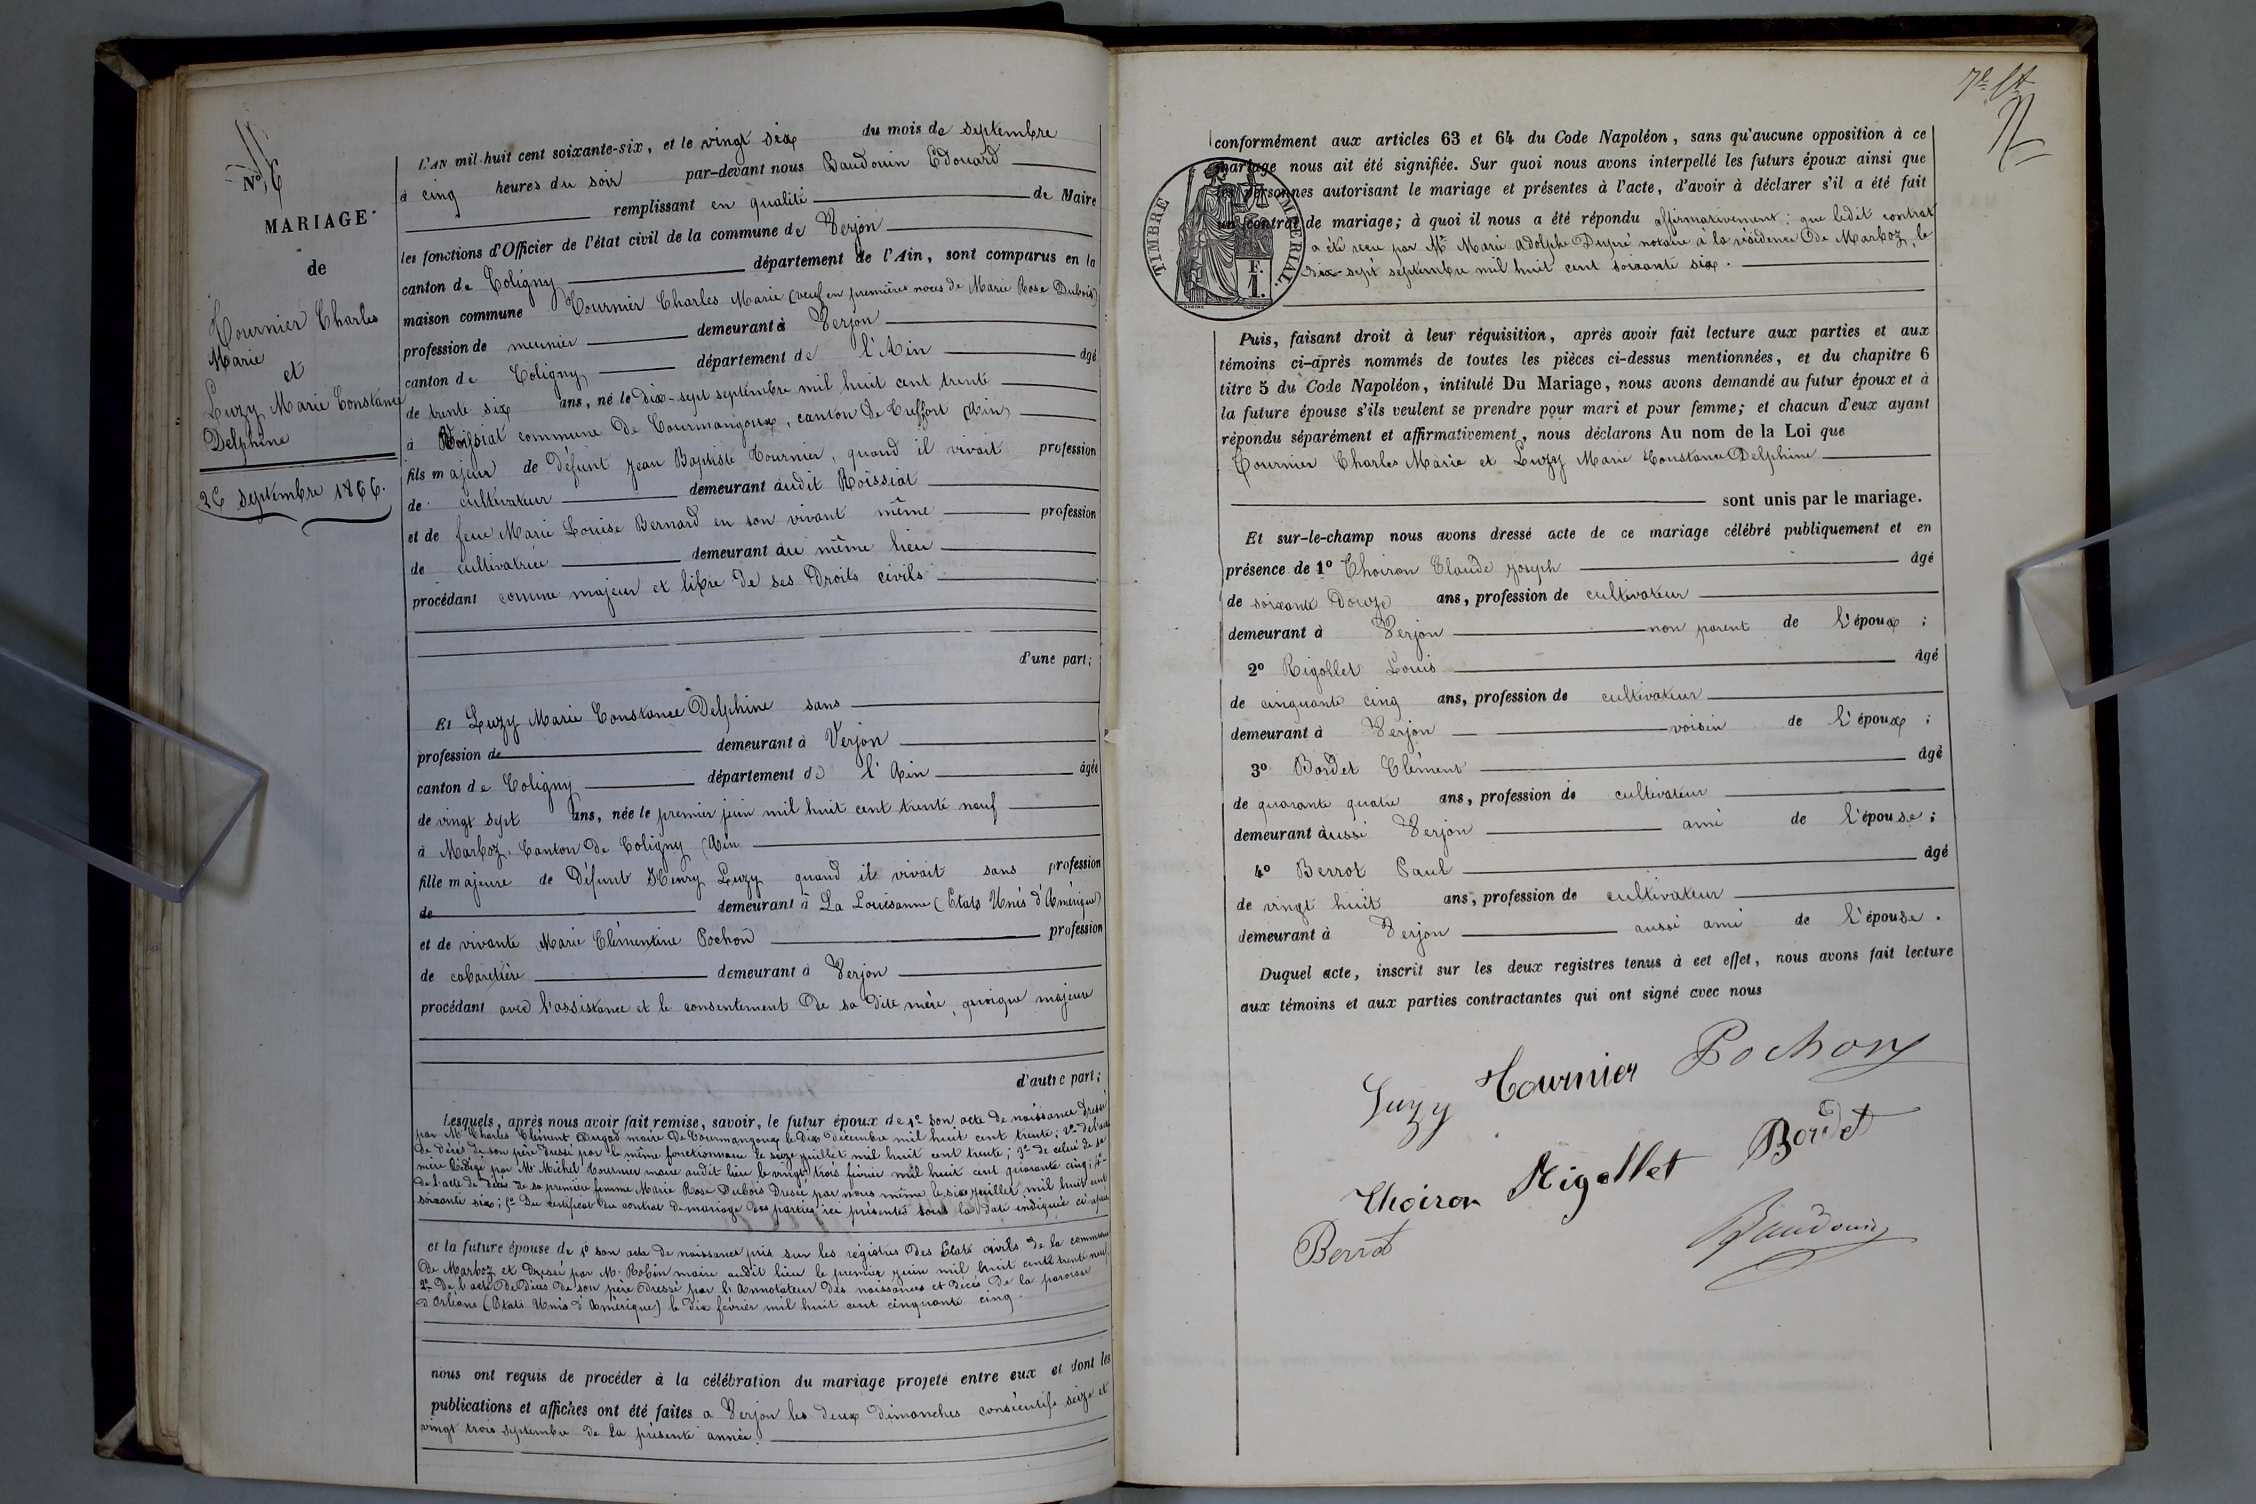 Nº 6
MARIAGE
de
Tournier Charles
Marie
et
Luzy Marie Constance
Delphine
26 septembre 1866.
L'AN mil-huit cent soixante-six, et le vingt six du mois de septembre
à cinq heures du soir par-devant nous Baudouin Edouard
remplissant en qualité de Maire
les fonctions d'Officier de l'état civil de la commune de Verjon
canton de Coligny département de l'Ain, sont comparus en la
maison commune Tournier Charles Marie (veuf en premières noces de Marie Rose Dubois)
profession de meunier demeurant à Verjon
canton de Coligny département de l'Ain âgé
de trente six ans, né le dix-sept septembre mil huit cent trente
à Roissiat commune de Courmangoux, canton de Treffort (Ain)
fils majeur de défunt Jean Baptiste Tournier, quand il vivait profession
de cultivateur demeurant audit Roissiat
et de feue Marie Louise Bernard en son vivant même profession
de cultivatrice demeurant au même lieu
procédant comme majeur et libre de ses droits civils
d'une part;
Et Luzy Marie Constance Delphine sans
profession de demeurant à Verjon
canton de Coligny département de l'Ain âgée
de vingt sept ans, née le premier juin mil huit cent trente neuf
à Marboz, Canton de Coligny (Ain
fille majeure de défunt Henry Luzy quand il vivait sans profession
de demeurant à La Louisanne (Etats Unis d'Amérique)
et de vivante Marie Clémentine Pochon profession
de cabaretière demeurant à Verjon
procédant avec l'assistance et le consentement de sa dite mère, quoique majeure
d'autre part;
Lesquels, après nous avoir fait remise, savoir, le futur époux de 1º son acte de naissance dressé
par Mr Charles Clément maire de Courmangoux le dix décembre mil huit cent trente; 2º de l'acte
de décès de son père dressé par le même fonctionnaire le seize juillet mil huit cent trente; 3º de celui de sa
mère rédigé par Mr Michel Tournier maire audit lieu le vingt trois février mil huit cent quarante cinq; 4º
de l'acte de décès de sa première femme Marie Rose Dubois dressé par nous même le six juillet mil huit cent
soixante six; 5º du certificat du contrat de mariage des parties ici présentes sous la date indiquée ci-après
et la future épouse de 1º son acte de naissance pris sur les régistres des Etats civils de la commune
de Marboz et dressé par M. Robin maire audit lieu le premier juin mil huit cent trente neuf;
2º de l'acte de décès de son père dressé par l'Annotateur des naissances et décès de la paroisse
d'Orléans (Etats Unis d'Amérique) le dix février mil huit cent cinquante cinq.
nous ont requis de procéder à la célébration du mariage projeté entre eux et dont les
publications et affiches ont été faites a Verjon les deux dimanches consécutifs seize et
vingt trois septembre de la présente année.
conformément aux articles 63 et 64 du Code Napoléon, sans qu'aucune opposition à ce
mariage nous ait été signifiée. Sur quoi nous avons interpellé les futurs époux ainsi que
les personnes autorisant le mariage et présentes à l'acte, d'avoir à déclarer s'il a été fait
un contrat de mariage; à quoi il nous a été répondu affirmativement: que ledit contrat
a été reçu par Me Marie Adolphe Dupré notaire à la résidence de Marboz, le
dix-sept septembre mil huit cent soixante six.
TIMBRE IMPÉRIAL.
F.
1.
Puis, faisant droit à leur réquisition, après avoir fait lecture aux parties et aux
témoins ci-après nommés de toutes les pièces ci-dessus mentionnées, et du chapitre 6
titre 5 du Code Napoléon, intitulé Du Mariage, nous avons demandé au futur époux et à
la future épouse s'ils veulent se prendre pour mari et pour femme; et chacun d'eux ayant
répondu séparément et affirmativement, nous déclarons Au nom de la Loi que
Tournier Charles Marie et Luzy Marie Constance Delphine
sont unis par le mariage.
Et sur-le-champ nous avons dressé acte de ce mariage célébré publiquement et en
présence de 1º Thoiron Claude Joseph âgé
de soixante douze ans, profession de cultivateur
demeurant à Verjon non parent de l'époux;
2º Rigollet Louis âgé
de cinquante cinq ans, profession de cultivateur
demeurant à Verjon voisin de l'époux;
3º Bordet Clément âgé
de quarante quatre ans, profession de cultivateur
demeurant aussi Verjon ami de l'épouse;
4º Berrot Paul âgé
de vingt huit ans, profession de cultivateur
demeurant à Verjon aussi ami de l'épouse.
Duquel acte, inscrit sur les deux registres tenus à cet effet, nous avons fait lecture
aux témoins et aux parties contractantes qui ont signé avec nous
Luzy Tournier Pochon
Thoiron Rigollet Bordet
Berrot Baudouin